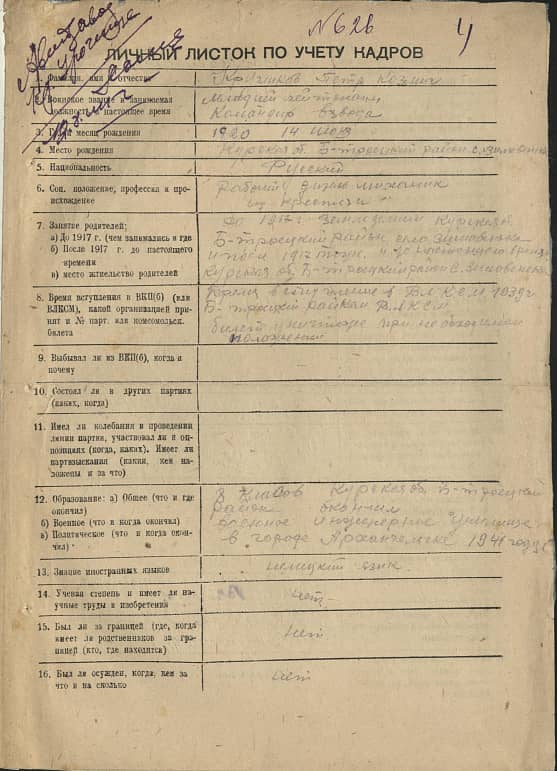 № 626
4
ЛИЧНЫЙ ЛИСТОК ПО УЧЕТУ КАДРОВ
Фамилия, имя отчество
Петр
Воинское звание и занимаемая
должность в настоящее время
Младший лейтенант
Командир взвода
3. Год и месяц рождения
1920 14 июля
4. Место рождения
Курская об. Б-троецкий район с.
5. Национальность
Русский
6. Соц. положение, профессия и про-
исхождение
Рабочий механик
из крестьян
7. Занятие родителей:
а) До 1917 г. (чем занимались и где
б) После 1917 г. до настоящего
времени
в) место жительство родителей
До 1917 г. земледелия Курская об.
Б-троецкий район село
и после 1917 года и до настоящего время
Курская об. Б-троецкий район с.
8. Время вступления в ВКП(б) (или
ВЛКСМ), какой организацией при-
нят и № парт. или комсомольск.
билета
в ВЛКСМ 1939 г
Б-троецкий райком ВЛКСМ
билет уничтоже при
положении
9. Выбывал ли из ВКП(б), когда и
почему
10. Состоял ли в других партиях
(каких, когда)
11. Имел ли колебания в проведении
линии партии, участвовал ли в оп-
позициях (когда, каких). Имеет ли
партвзыскания (какия, кем на-
ложены и за что)
12. Образование: а) Общее (что и где
окончил)
б) Военное (что и когда окончил)
в) Политическое (что и когда окон-
чил)
8 классов Курская об. Б-троецкий
район окончил
Военное инженерное училище
в городе Архангельске 1941 году
13. Знание иностранных языков
немецкий язик.
14. Ученая степень и имеет ли на-
учные труды и изобретения
нет
15. Был ли за границей (где, когда
имеет ли родственников за гра-
ницей (кто, где находится)
нет
16. Был ли осужден, когда, кем за
что и на сколько
нет